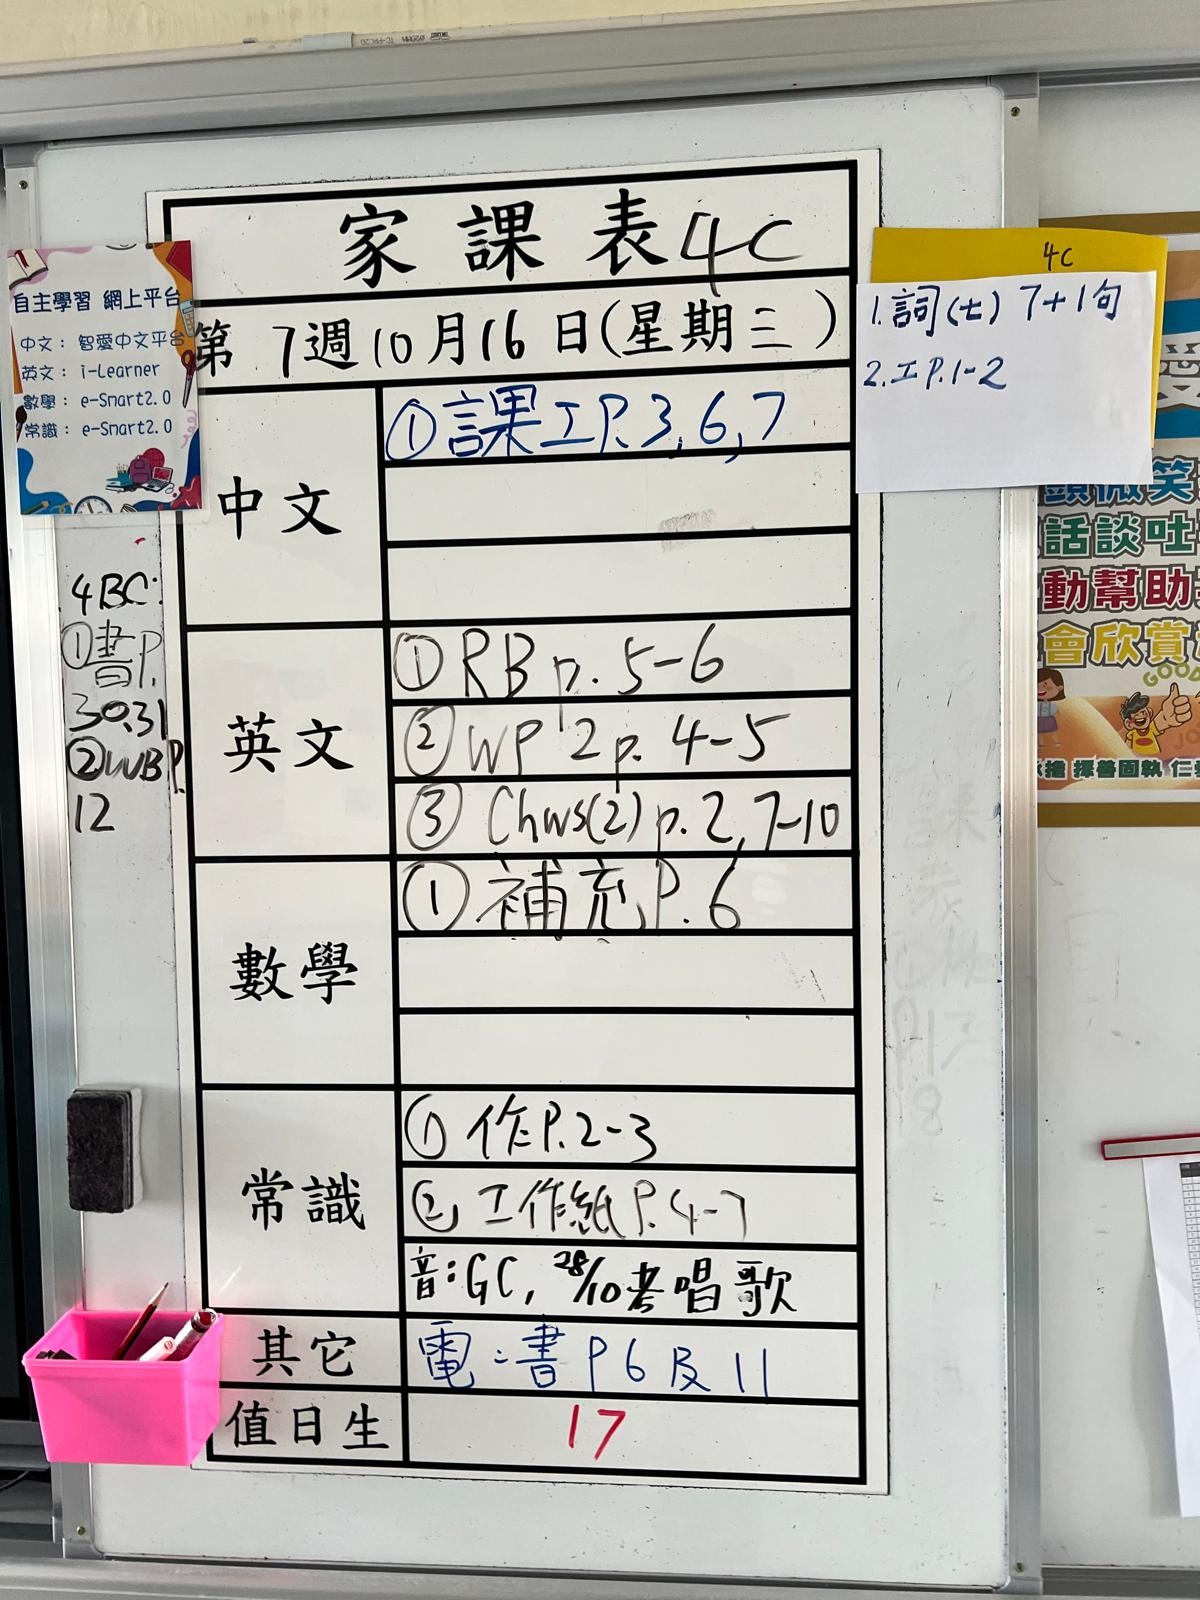 家課表 4C
第 7 週 10 月 16 日(星期三)
中文
① 課工P.3,6,7
英文
① RB p.5-6
② WP 2 p.4-5
③ Chws(2) p.2,7-10
數學
① 補充P.6
常識
① 作P.2-3
② 工作紙P.4-7
音:GC, 28/10考唱歌
其它
電:書P6及11
值日生
17
自主學習 網上平台
中文: 智愛中文平台
英文: i-Learner
數學: e-Smart2.0
常識: e-Smart2.0
4BC:
①書P.
30,31
②WBP.
12
4C
1.詞(七) 7+1句
2.工P.1-2
微笑
話談吐
動幫助
會欣賞
GOOD
擇善固執